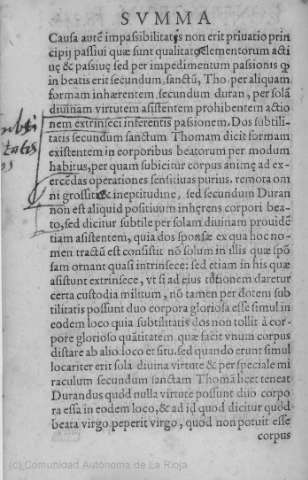 SVMMA
Causa autẽ impassibilitatis non erit priuatio prin
cipij passiui quæ sunt qualitates elementorum acti
uę & passiuę sed per impedimentum passionis q̃
in beatis erit secundum sanctũ, Tho. per aliquam
formam inhærentem secundum duran, per solã
diuinam virtutem asistentem prohibentem actio
nem extrinseci inferentis passionem. Dos subtili
tatis secundum sanctum Thomam dicit formam
existentem in corporibus beatorum per modum
habitus, per quam subicitur corpus animę ad ex-
ercẽdas operationes sensitiuas purius, remota om
ni grossitie & ineptitudine, sed secundum Duran
non est aliquid positiuum inhęrens corpori bea-
to, sed dicitur subtile per solam diuinam prouidẽ
tiam asistentem, quia dos sponsæ ex qua hoc no-
men tractũ est consistit nõ solum in illis quæ spõ
sam ornant quasi intrinsece: sed etiam in his quæ
asistunt extrinsece, vt si ad eius tuitionem daretur
certa custodia militum, nõ tamen per dotem sub
tilitatis possunt duo corpora gloriosa esse simul in
eodem loco quia subtilitatis dos non tollit à cor-
pore glorioso quãtitatem quæ facit vnum corpus
distare ab alio loco et situ. sed quando erunt simul
locariter erit sola diuina virtute & per speciale mi
raculum secundum sanctam Thomã licet teneat
Durandus quòd nulla virtute possunt duo corpo
ra essa in eodem loco, & ad id quod dicitur quòd
beata virgo peperit virgo, quòd non potuit esse
corpus
subti
tates
(c) Comunidad Autónoma de La Rioja